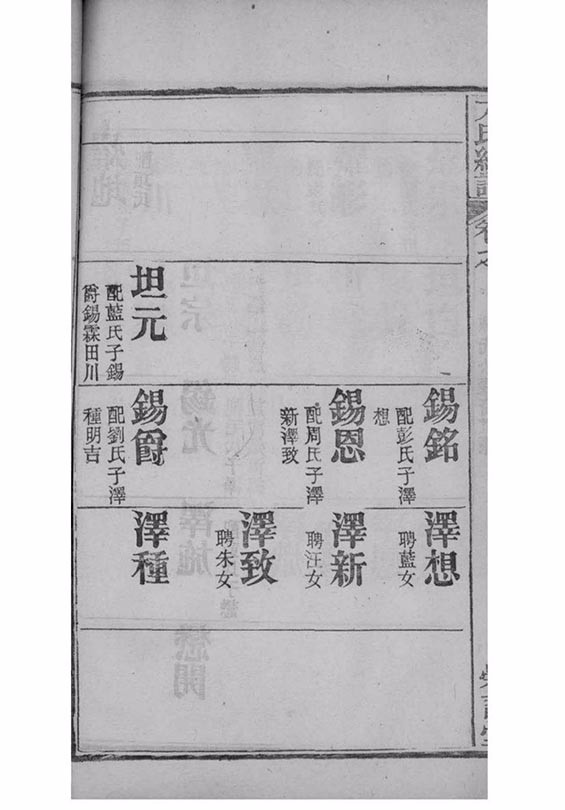 氏
錫銘
配彭氏子澤
想
錫恩
配周氏子澤
新澤致
坦元
配藍氏子錫
爵錫霖田川
錫爵
配劉氏子澤
種明吉
澤想
聘藍女
澤新
聘汪女
澤致
聘朱女
澤種